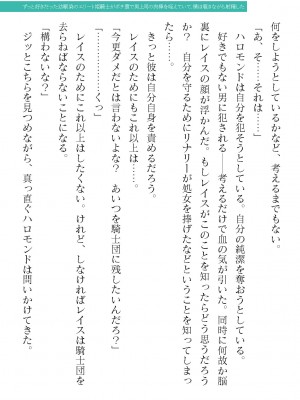 何をしようとしているかなど、考えるまでもない。
「あ、そ……それは……」
ハロモンドは自分を犯そうとしている。自分の純潔を奪おうとしている。
好きでもない男に犯される――考えるだけで血の気が引いた。同時に何故か脳
裏にレイスの顔が浮かんだ。もしレイスがこのことを知ったらどう思うだろう
か？　自分を守るためにリナリーが処女を捧げたなどということを知ってしまっ
たら……。
きっと彼は自分自身を責めるだろう。
レイスのためにもこれ以上は……。
「今更ダメだとは言わないよな？　あいつを騎士団に残したいんだろ？」
「…………くっ」
レイスのためにこれ以上はしたくない。けれど、しなければレイスは騎士団を
去らねばならないことになる。
「構わないな？」
ジッとこちらを見つめながら、真っ直ぐハロモンドは問いかけてきた。